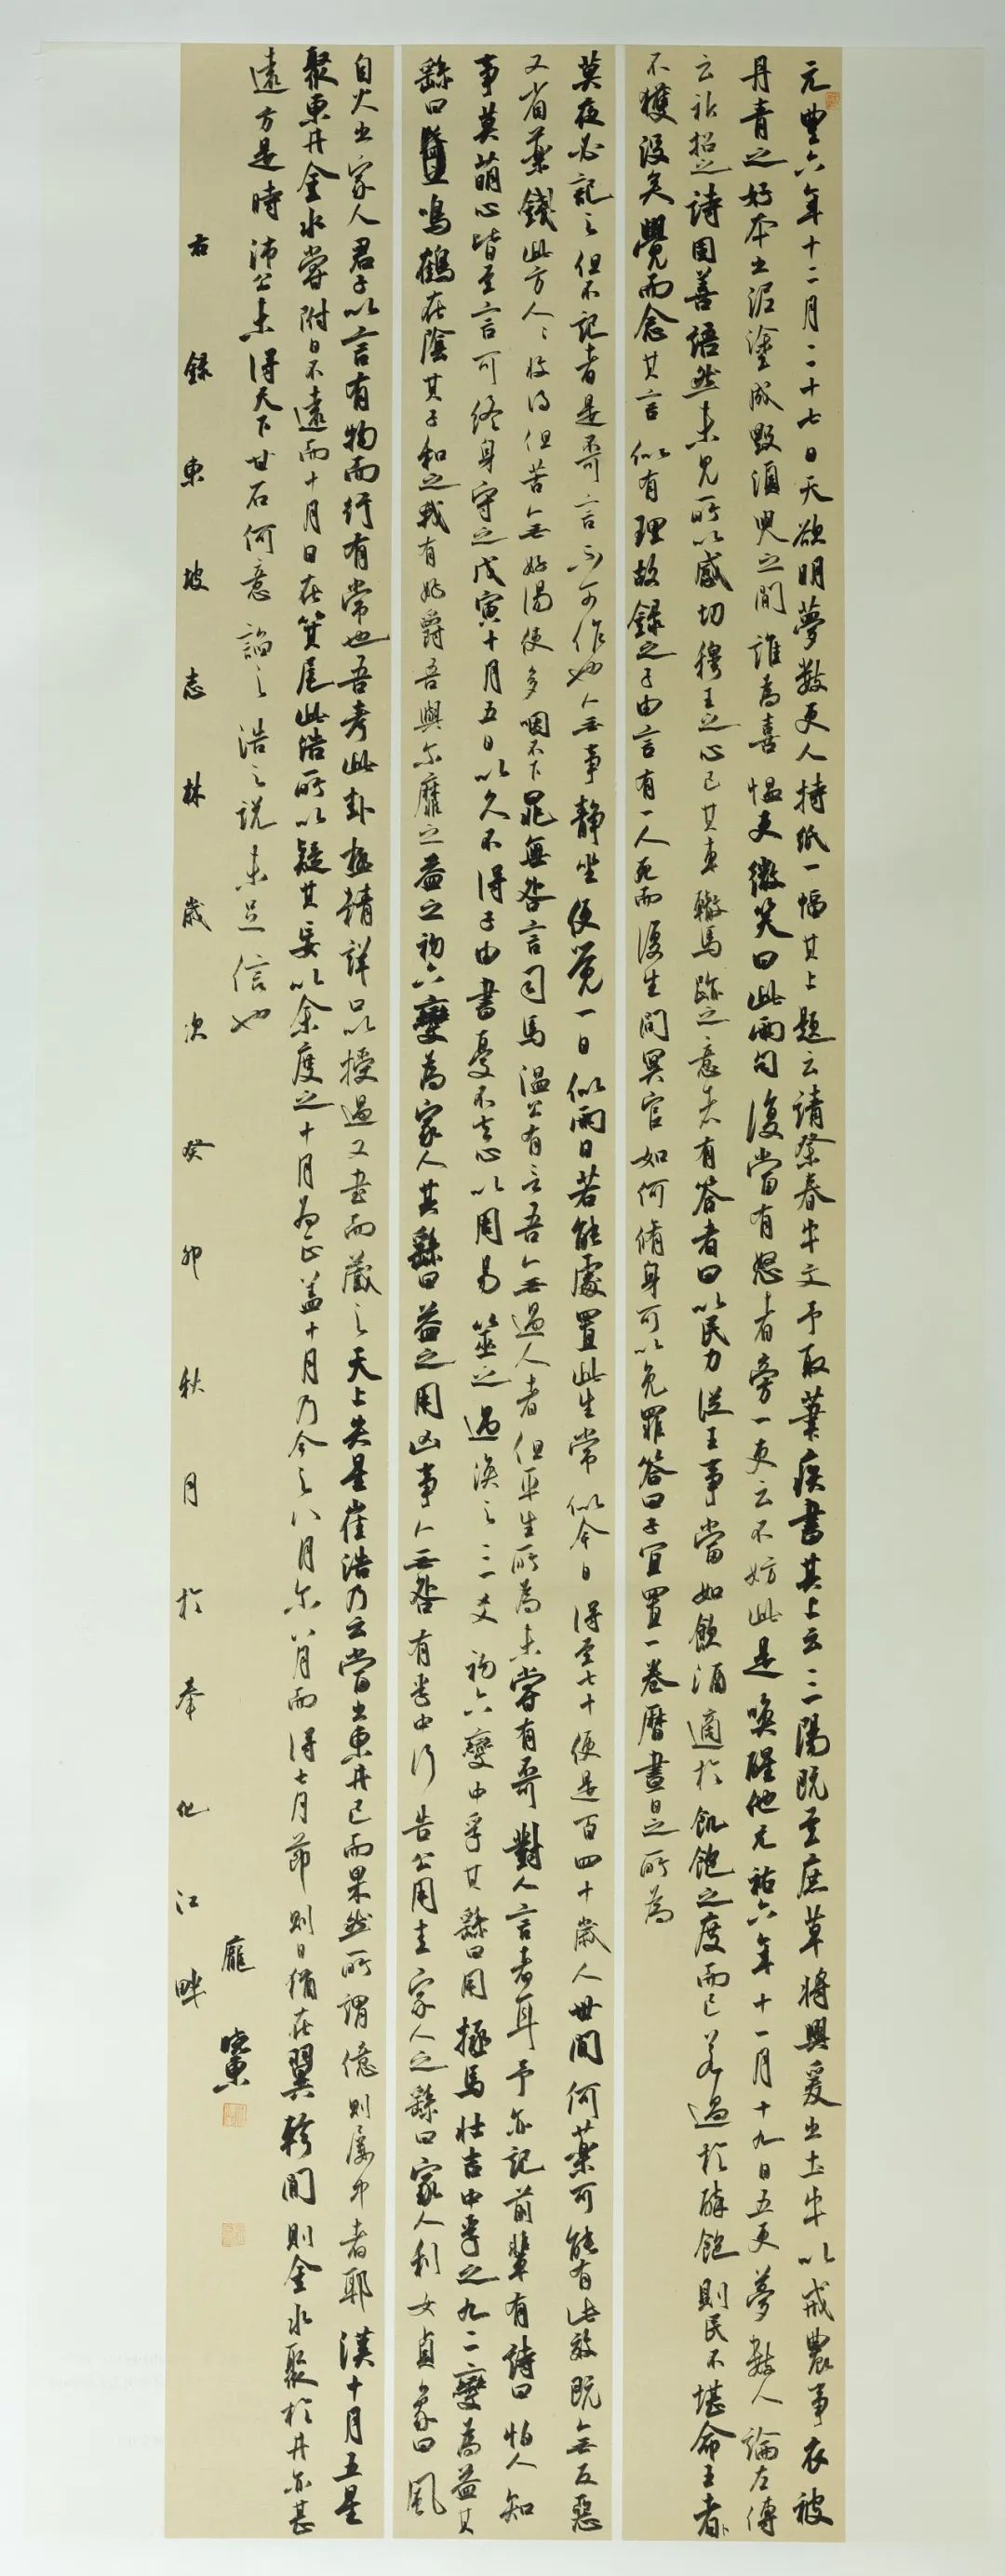 元豐六年十二月二十七日天欲明夢數吏人持紙一幅其上題云請祭春牛文予取筆疾書其上云三陽既至庶草將興爰出土牛以戒農事衣被
丹青之好本出泥塗成毀須臾之間誰為喜慍吏微笑曰此兩句復當有怒者旁一吏云不妨此是喚醒他元祐六年十一月十九日五更夢數人論左傳
云祈招之詩固善語然未見所以感切穆王之心已其車轍馬跡之意者有答者曰以民力從王事當如飲酒適於飢飽之度而已若過於醉飽則民不堪命王者
不獲沒矣覺而念其言似有理故錄之子由言有一人死而復生問冥官如何脩身可以免罪答曰子宜置一卷曆晝日之所為
莫夜必記之但不記者是不可言不可作也無事靜坐便覺一日似兩日若能處置此生常似今日得至七十便是百四十歲人世間何藥可能有此效既無反惡
又省藥錢此方人人收得但苦無好湯使多咽不下晁無咎言司馬溫公有言吾無過人者但平生所為未嘗有不可對人言者耳予亦記前輩有詩曰怕人知
事莫萌心皆至言可終身守之戊寅十月五日以久不得子由書憂不去心以周易筮之遇渙之三爻初六變中孚其繇曰用拯馬壯吉中孚之九二變為益其
繇曰鳴鶴在陰其子和之我有好爵吾與爾靡之益之初六變為家人其繇曰益之用凶事無咎有孚中行告公用圭家人之繇曰家人利女貞象曰風
自火出家人君子以言有物而行有常也吾考此卦極精詳口以授過又書而藏之天上失星崔浩乃云當出東井已而果然所謂億則屢中者耶漢十月五星
聚東井金水嘗附日不遠而十月日在箕尾此浩所以疑其妄以余度之十月為正蓋十月乃今之八月爾八月而得七月節則日猶在翼軫間則金水聚於井亦甚
遠方是時沛公未得天下甘石何意諂之浩之說未足信也
右錄東坡志林歲次癸卯秋月於奉化江畔
龐